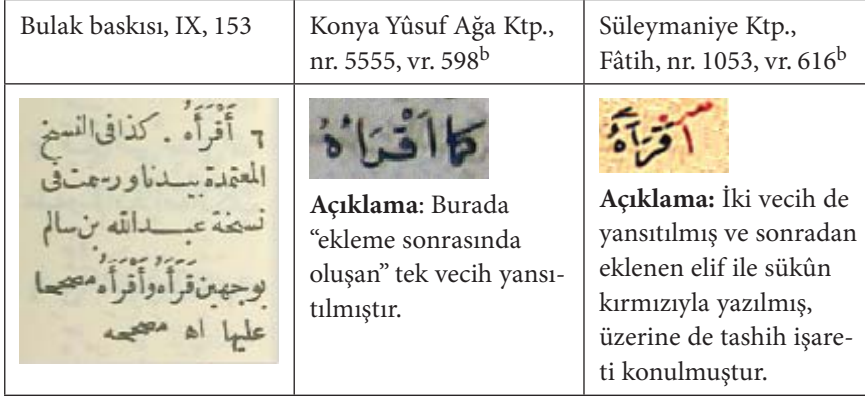 Bulak baskısı, IX, 153
Konya Yûsuf Ağa Ktp.,
nr. 5555, vr. 598b
Süleymaniye Ktp.,
Fâtih, nr. 1053, vr. 616b
٦ أَقْرَأَهُ . كذا في النسخ
المعتمدة بيدنا ورسمت في
نسخة عبد الله بن سالم
بوجهين قَرَأَهُ وأَقْرَأَهُ مصححا
عليها اه مصححه
كما اَقْرَاَهُ
Açıklama: Burada
“ekleme sonrasında
oluşan” tek vecih yansı-
tılmıştır.
أقرأه
Açıklama: İki vecih de
yansıtılmış ve sonradan
eklenen elif ile sükûn
kırmızıyla yazılmış,
üzerine de tashih işare-
ti konulmuştur.